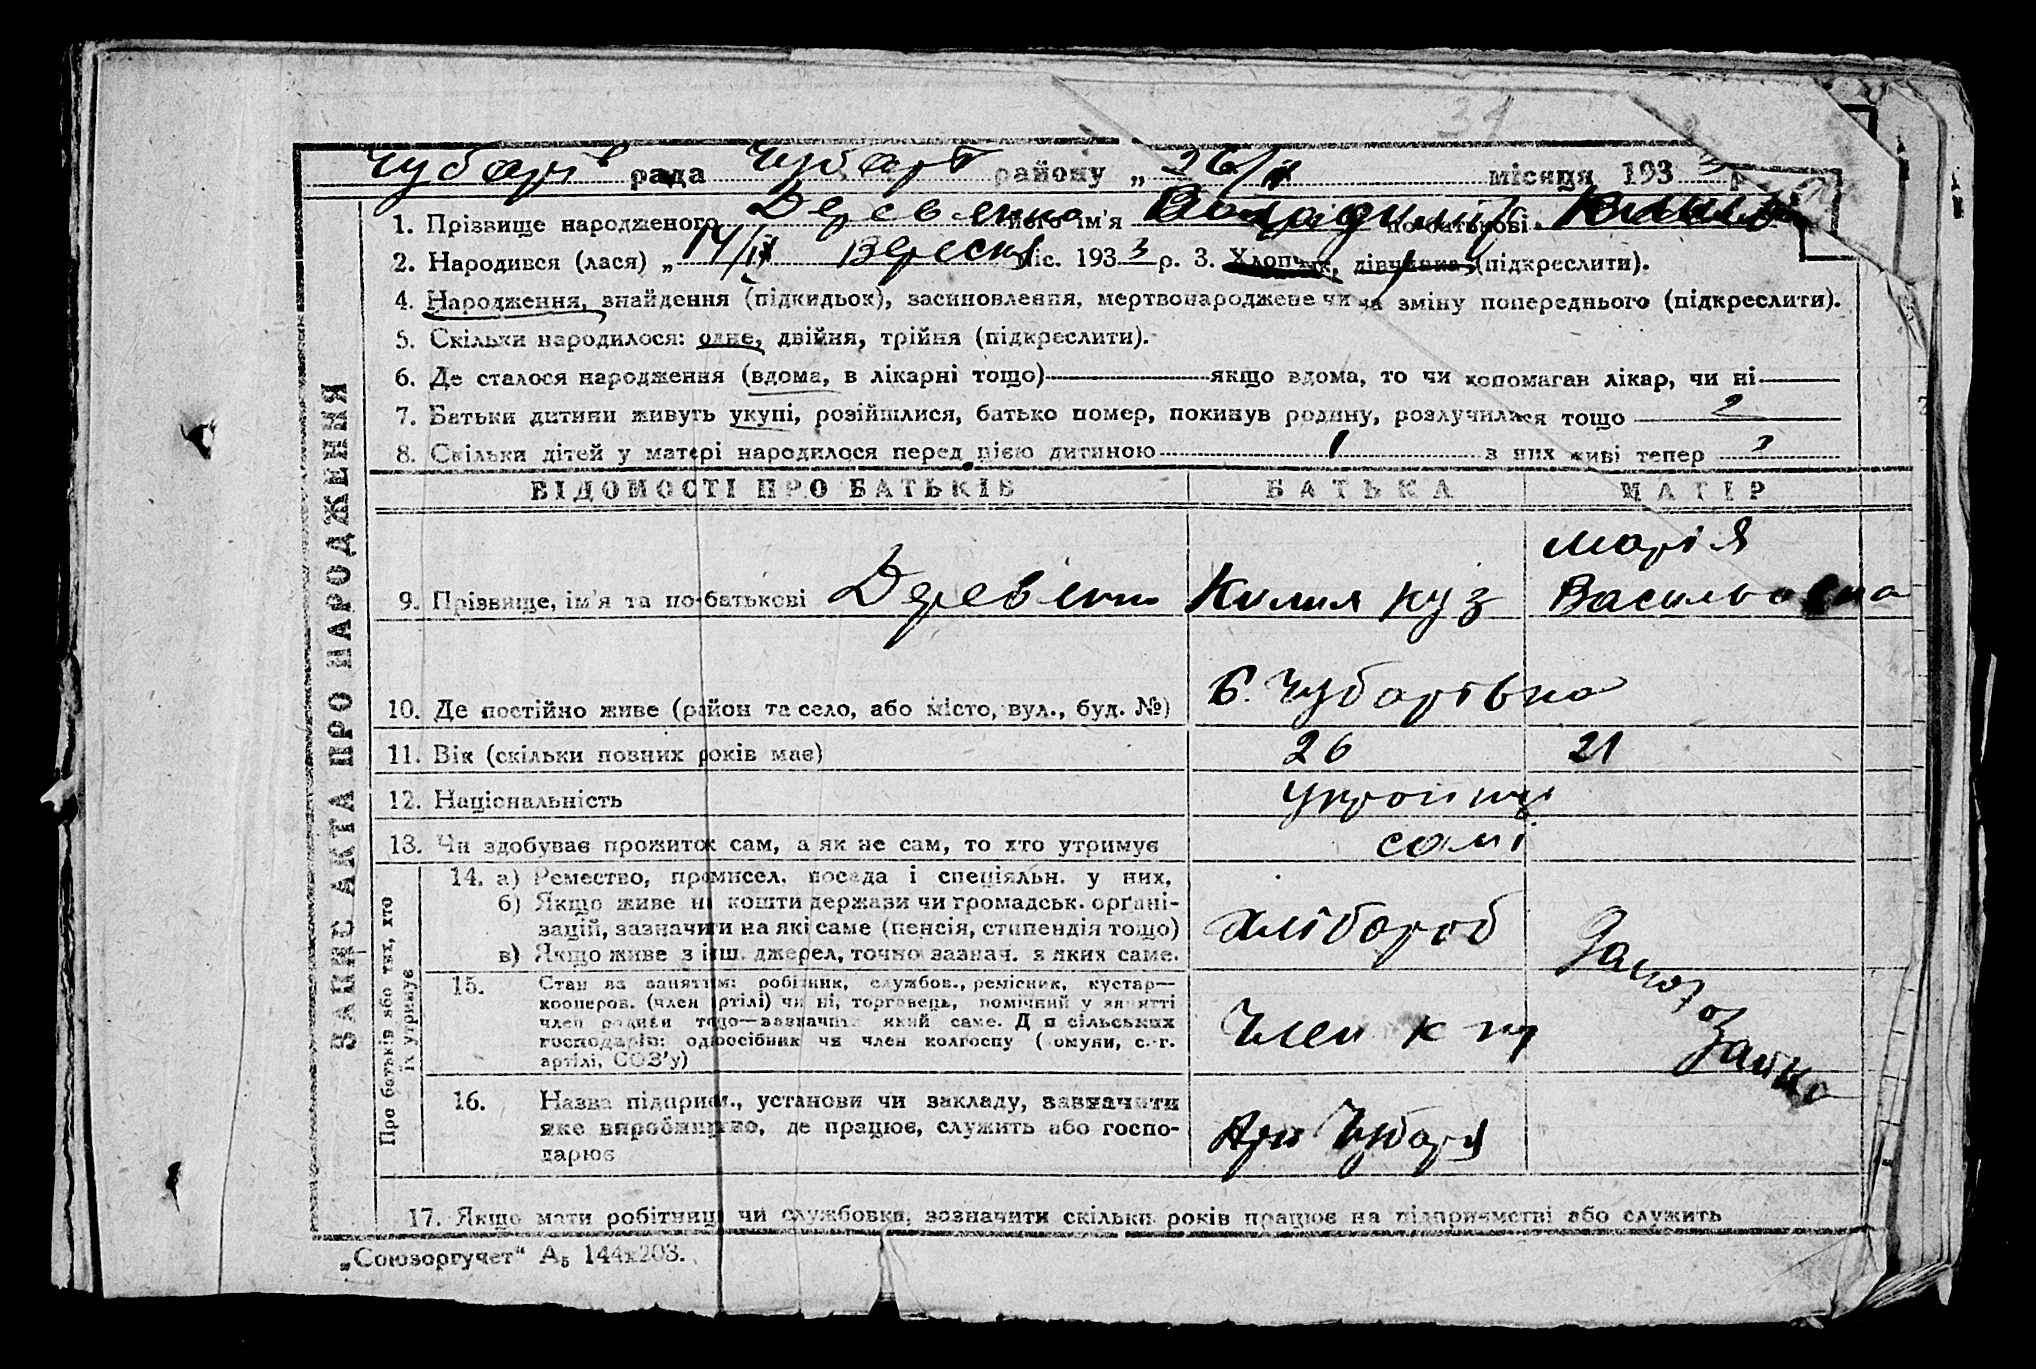 31
Чубарів рада Чубарів району „ 26/ІХ місяця 193 3 р.
1. Прізвище народженого Деревянко його ім'я Володимир по-батькові
2. Народився (лася) „ 14/ІХ Вересня міс. 193 3 р. 3. Хлопчик, дівчинка (підкреслити).
4. Народження, знайдення (підкидьок), засиновлення, мертвонароджене чи на зміну попереднього (підкреслити).
5. Скільки народилося: одне, двійня, трійня (підкреслити).
6. Де сталося народження (вдома, в лікарні тощо) якщо вдома, то чи допомагав лікар, чи ні
7. Батьки дитини живуть укупі, розійшлися, батько помер, покинув родину, розлучилися тощо 2
8. Скільки дітей у матері народилося перед цією дитиною 1 з них живі тепер 2
ЗАПИС АКТА ПРО НАРОДЖЕННЯ
ВІДОМОСТІ ПРО БАТЬКІВ БАТЬКА МАТІР
Марія
9. Прізвище, ім'я та по-батькові Деревянко Килил Куз Васильовна
10. Де постійно живе (район та село, або місто, вул., буд. №) С. Чубарівка
11. Вік (скільки повних років має) 26 21
12. Національність україн
13. Чи здобуває прожиток сам, а як не сам, то хто утримує самі
Про батьків або тих, хто їх утримує
14. а) Ремество, промисел, посада і спеціяльн. у них,
б) Якщо живе на кошти держави чи громадськ. органі-
зацій, зазначити на які саме (пенсія, стипендія тощо) хлібороб
в) Якщо живе з інш. джерел, точно зазнач. з яких саме.
15. Стан за заняттям: робітник, службов., ремісник, кустар—
кооперов. (член артілі) чи ні, торговець, помічний у занятті
член родини тощо—зазначити який саме. Для сільських
господарів: одноосібник чи член колгоспу (комуни, с.-г.
артілі, СОЗ'у) Член к
16. Назва підприєм., установи чи закладу, зазначити
яке виробництво, де працює, служить або госпо-
дарює Арт Чубаря
17. Якщо мати робітниця чи службовка, зазначити скільки років працює на підприємстві або служить
„Союзоргучет“ А₅ 144x203.